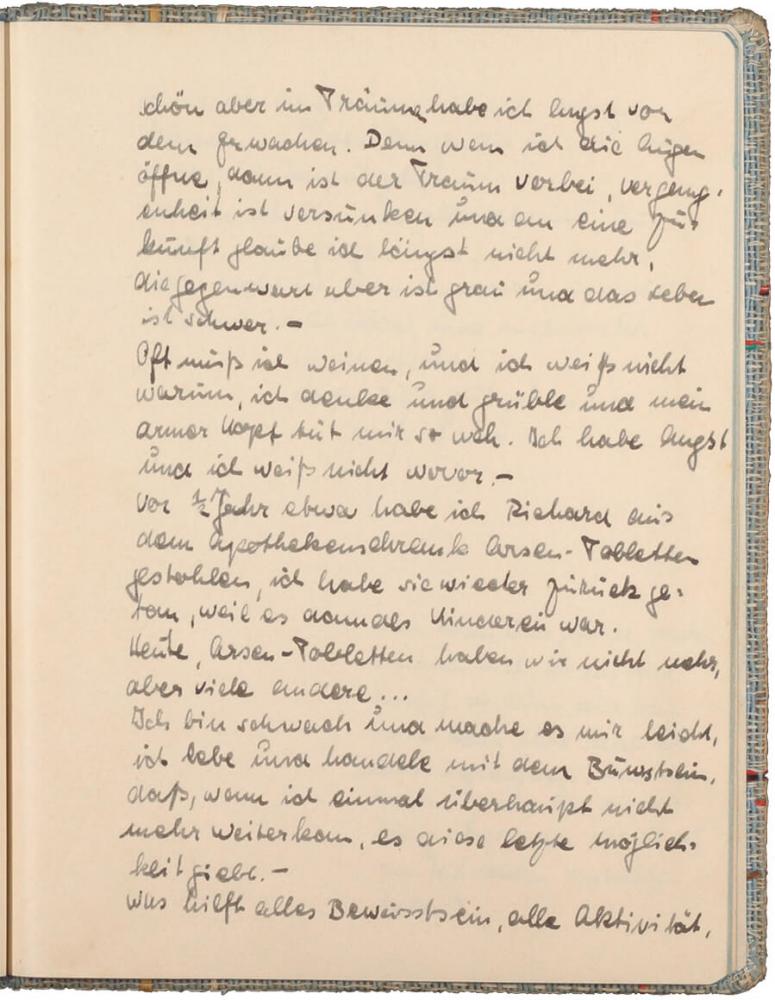 schön aber im Träume habe ich Angst vor
dem Erwachen. Denn wenn ich die Augen
öffne, dann ist der Traum vorbei, vergang-
enheit ist versunken und an eine Zu-
kunft glaube ich längst nicht mehr,
die gegenwart aber ist grau und das Leben
ist schwer.-
Oft muß ich weinen, und ich weiß nicht
warum, ich denke und grüble und mein
armer Kopf tut mir so weh. Ich habe Angst
und ich weiß nicht wovor.-
Vor ½ Jahr etwa habe ich Richard aus
dem Apothekenschrank Arsen-Tabletten
gestohlen, ich habe sie wieder zurück ge-
tan, weil es damals Kinderei war.
Heute, Arsen-Tabletten haben wir nicht mehr,
aber viele andere...
Ich bin schwach und mache es mir leicht,
ich lebe und handele mit dem
daß, wenn ich einmal überhaupt nicht
mehr weiterkann, es diese letzte möglich-
keit giebt.-
Was hilft alles Bewusstsein, alle Aktivität,